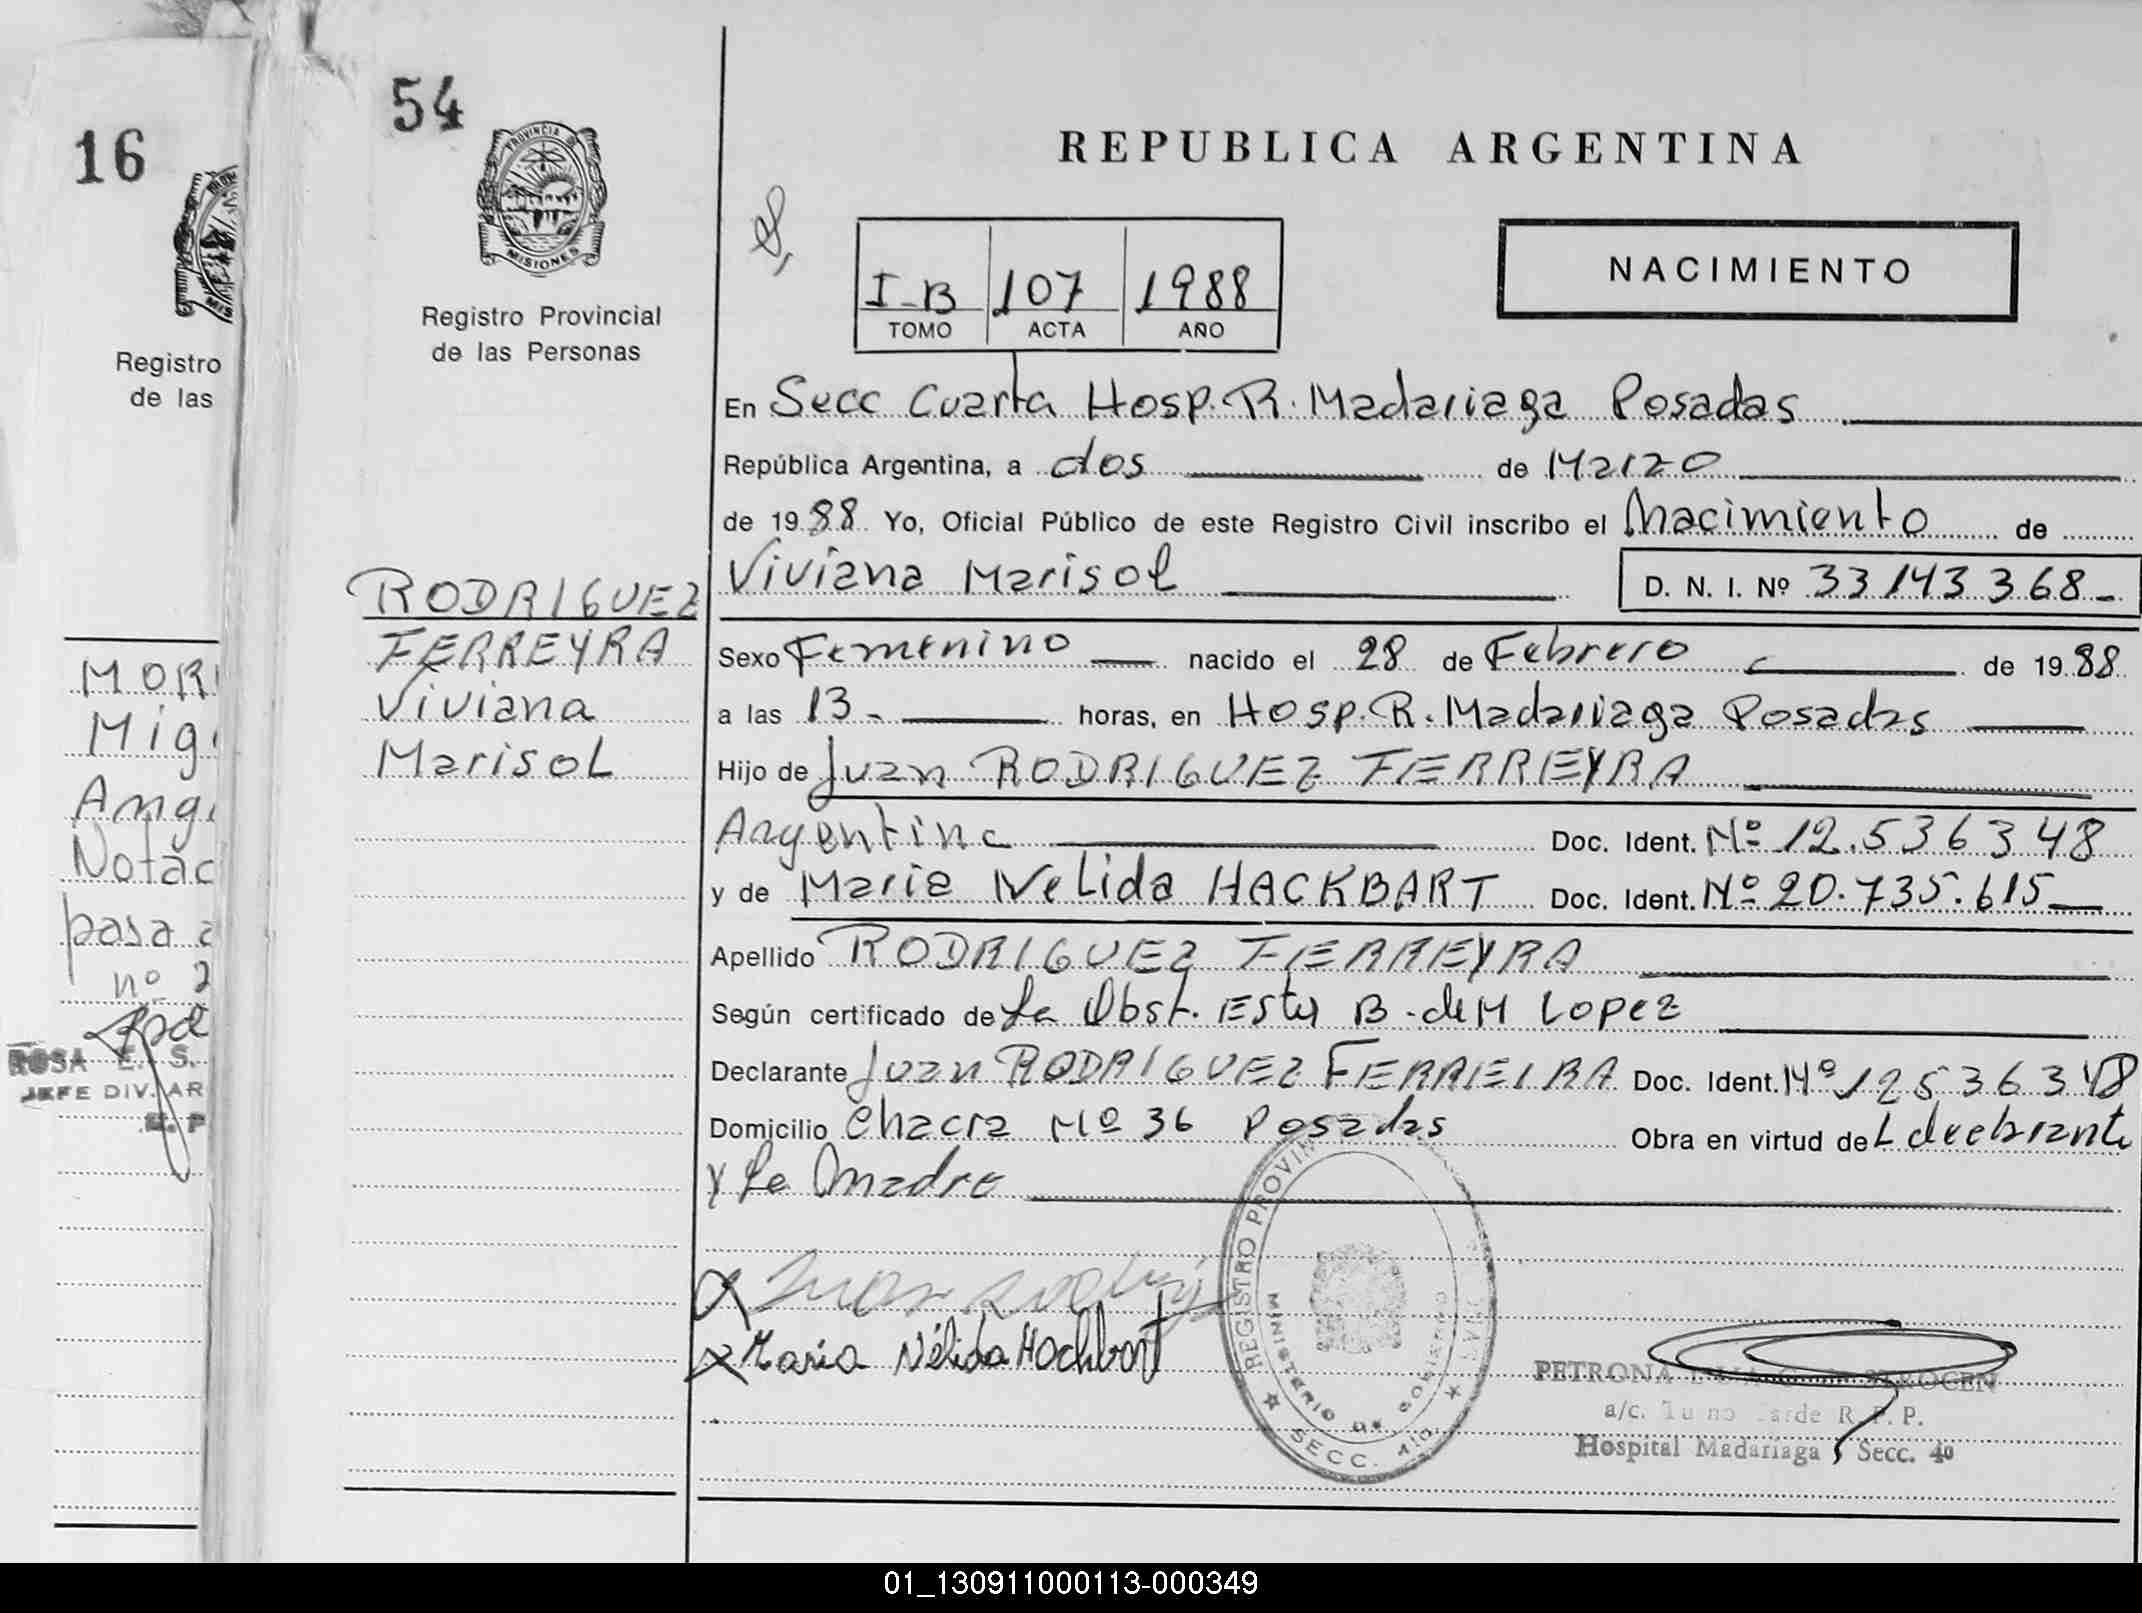 16
Registro
de las
MOR
Mig
Ang
Notac
pasa a
nº 2
ROSA E. S.
JEFE DIV. AR
54
PROVINCIA DE
MISIONES
Registro Provincial
de las Personas
RODRIGUEZ
FERREYRA
Viviana
Marisol
REPUBLICA ARGENTINA
I-B 107 1988
TOMO ACTA AÑO
NACIMIENTO
En Secc Cuarta Hosp. R. Madariaga Posadas
República Argentina, a dos de Marzo
de 1988 Yo, Oficial Público de este Registro Civil inscribo el Nacimiento de
Viviana Marisol D. N. I. Nº 33143368
Sexo Femenino nacido el 28 de Febrero de 1988
a las 13 horas, en Hosp. R. Madariaga Posadas
Hijo de Juan RODRIGUEZ FERREYRA
Argentina Doc. Ident. Nº 12.536348
y de Maria Nelida HACKBART Doc. Ident. Nº 20.735.615
Apellido RODRIGUEZ FERREYRA
Según certificado de La Obst. Ester B. de M Lopez
Declarante Juan RODRIGUEZ FERREIRA Doc. Ident. Nº 12536348
Domicilio Chacra Nº 36 Posadas Obra en virtud de L declarante
y La Madre
Juan Rodrig
Maria Nélida Hackbart
REGISTRO PROVIN
MINISTERIO DE GOBIERNO
SECC. 4ta
PETRONA
a/c. Turno Tarde R. P. P.
Hospital Madariaga Secc. 4a
01_130911000113-000349